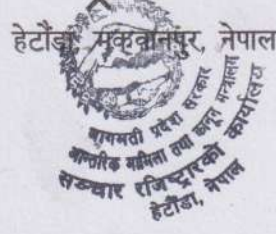 हेटौंडा, मकवानपुर, नेपाल
बागमती प्रदेश सरकार
आन्तरिक मामिला तथा कानून मन्त्रालय
सञ्चार रजिष्ट्रारको कार्यालय
हेटौंडा, नेपाल